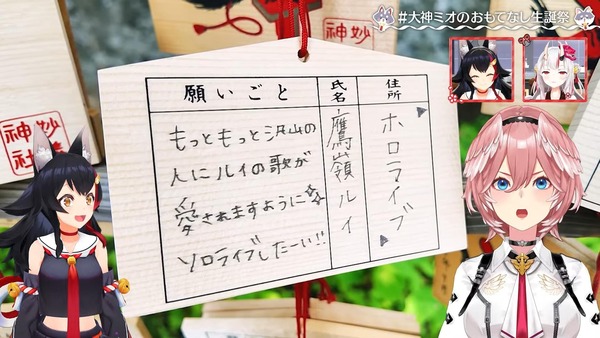 #大神ミオのおもてなし生誕祭
願いごと
氏名
住所
もっともっと沢山の
人にルイの歌が
愛されますように☆
ソロライブしたーい!!
鷹嶺ルイ
ホロライブ
神妙
神妙
社